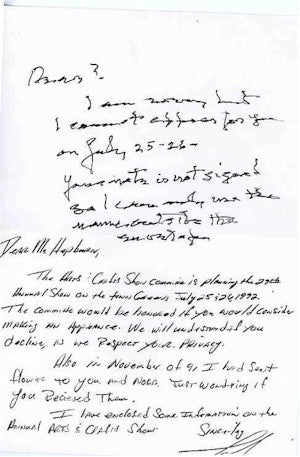 Dears?
I am sorry but
I cannot appear for you
on July 25-26-
Your note is not signed
so I can only use the
name outside the
envelope
Dear Ms Hepburn,
The Arts & Crafts Show Committee is planning the 29th
Annual Show on the town Campus July 25 & 26 1992.
The committe would be honored if you would consider
making an Apperance. We will understand if you
decline, as we Respect your privacy.
Also in November of 91 I had sent
flower to you and Nora. Just wondring if
you Recieved Them.
I have enclosed some Information on the
Annual Arts & Crafts Show
Sincerly